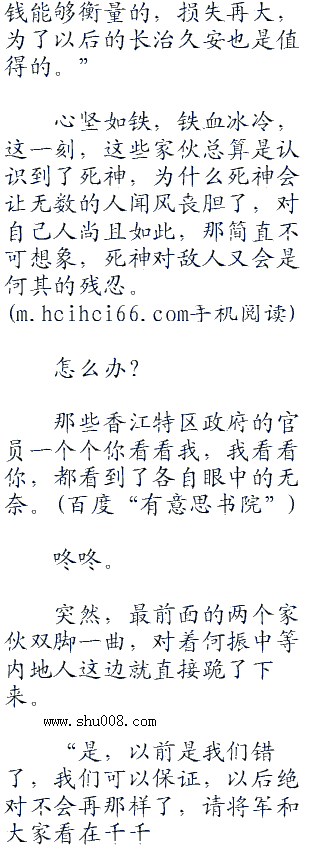 钱能够衡量的，损失再大，
为了以后的长治久安也是值
得的。”
心坚如铁，铁血冰冷，
这一刻，这些家伙总算是认
识到了死神，为什么死神会
让无数的人闻风丧胆了，对
自己人尚且如此，那简直不
可想象，死神对敌人又会是
何其的残忍。
(m.hcihci66.com手机阅读)
怎么办?
那些香江特区政府的官
员一个个你看看我，我看看
你，都看到了各自眼中的无
奈。(百度“有意思书院”)
咚咚。
突然，最前面的两个家
伙双脚一曲，对着何振中等
内地人这边就直接跪了下
来。
www.shu008.com
“是，以前是我们错
了，我们可以保证，以后绝
对不会再那样了，请将军和
大家看在千千